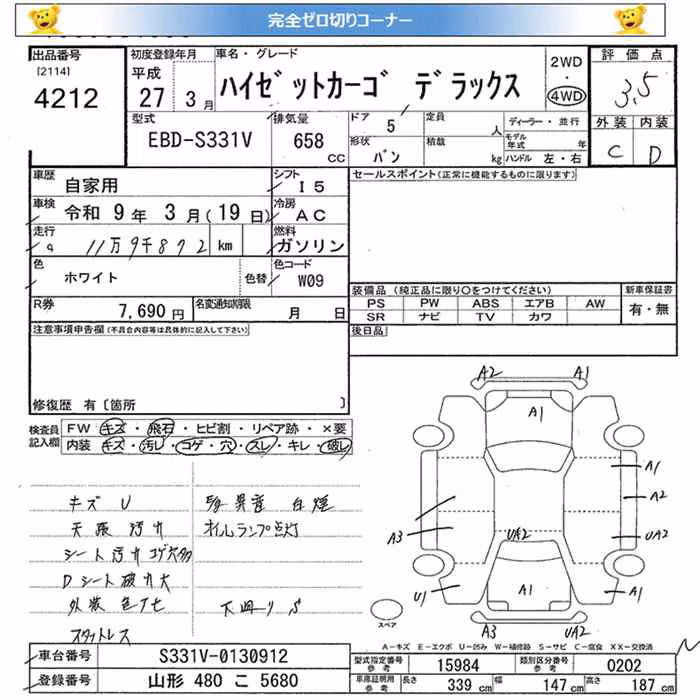 完全ゼロ切りコーナー
出品番号
[2114]
4212
初度登録年月
平成 27年 3月
車名・グレード
ハイゼットカーゴ デラックス
2WD
・
4WD
評価点
3.5
外装 内装
C D
型式
EBD-S331V
排気量
658
CC
ドア 5
形状 バン
定員 人
積載 kg
ディーラー・並行
モデル年式 年
ハンドル 左・右
車歴 自家用
シフト I5
セールスポイント(正常に機能するものに限ります)
車検 令和 9年 3月(19日)
冷房 AC
走行 11万9千872 km
燃料 ガソリン
色 ホワイト 色替
色コード W09
R券 7,690円
名変通知期限 月 日
装備品 (純正品に限り○をつけてください)
PS PW ABS エアB AW
SR ナビ TV カワ
新車保証書
有・無
後日品
注意事項申告欄(不具合内容等は具体的に記入して下さい)
修復歴 有[箇所 ]
検査員記入欄
FW キズ・飛石・ヒビ割・リペア跡・×要
内装 キズ・汚レ・コゲ・穴・スレ・キレ・破レ
キズ U
天張汚れ
シート汚れコゲ穴多
Dシート破れ大
外装色アセ
スタットレス
異音 白煙
オイルランプ点灯
下廻り S
A2 A1
A1
A1
A2
A3 UA2 UA2
U1 A1 A1
A3 UA2
スペア
A-キズ E-エクボ U-凹み W-補修跡 S-サビ C-腐食 XX-交換済
車台番号 S331V-0130912
登録番号 山形 480 こ 5680
型式指定番号 参考 15984
類別区分番号 参考 0202
車庫証明用 参考 長さ 339 cm 幅 147 cm 高さ 187 cm